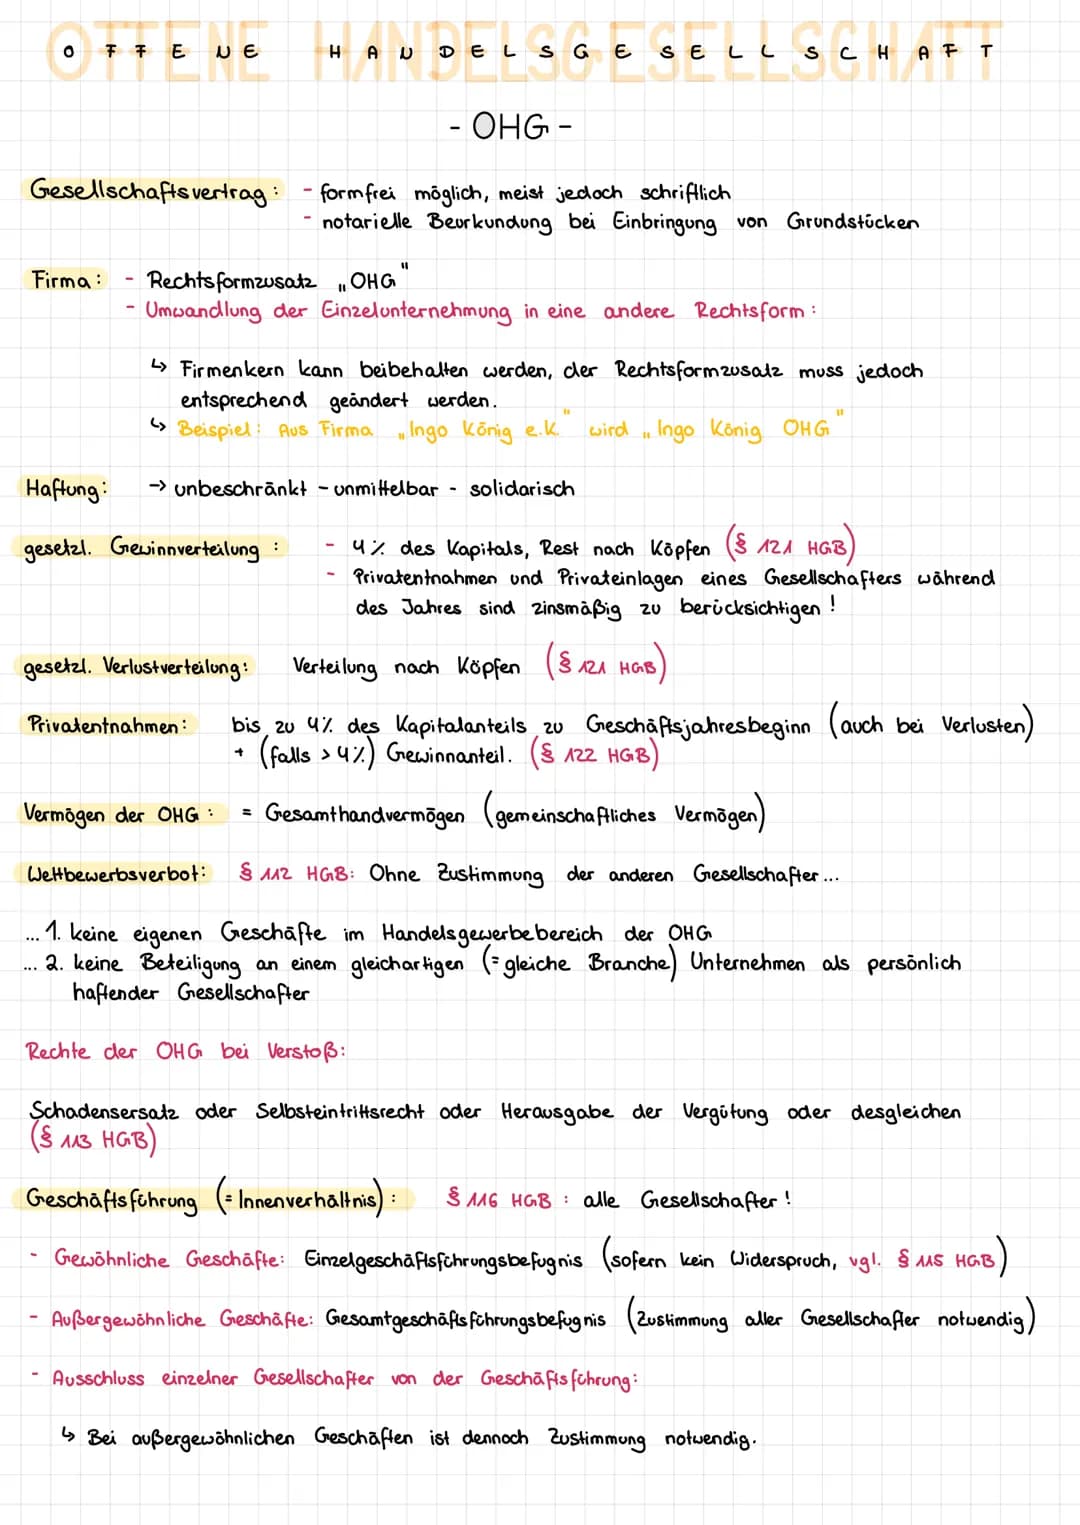 OFFENE HANDELSGESELLSCHAFT
- OHG -
Gesellschaftsvertrag: - formfrei möglich, meist jedoch schriftlich
- notarielle Beurkundung bei Einbringung von Grundstücken
Firma: - Rechtsformzusatz „OHG"
- Umwandlung der Einzelunternehmung in eine andere Rechtsform:
↳ Firmenkern kann beibehalten werden, der Rechtsformzusatz muss jedoch
entsprechend geändert werden.
↳ Beispiel: Aus Firma „Ingo König e.K." wird „Ingo König OHG"
Haftung: → unbeschränkt - unmittelbar - solidarisch
gesetzl. Gewinnverteilung: - 4% des Kapitals, Rest nach Köpfen (§ 121 HGB)
- Privatentnahmen und Privateinlagen eines Gesellschafters während
des Jahres sind zinsmäßig zu berücksichtigen!
gesetzl. Verlustverteilung: Verteilung nach Köpfen (§ 121 HGB)
Privatentnahmen: bis zu 4% des Kapitalanteils zu Geschäftsjahresbeginn (auch bei Verlusten)
+ (falls > 4%) Gewinnanteil. (§ 122 HGB)
Vermögen der OHG: = Gesamthandvermögen (gemeinschaftliches Vermögen)
Wettbewerbsverbot: § 112 HGB: Ohne Zustimmung der anderen Gesellschafter...
... 1. keine eigenen Geschäfte im Handelsgewerbebereich der OHG
... 2. keine Beteiligung an einem gleichartigen (= gleiche Branche) Unternehmen als persönlich
haftender Gesellschafter
Rechte der OHG bei Verstoß:
Schadensersatz oder Selbsteintrittsrecht oder Herausgabe der Vergütung oder desgleichen
(§ 113 HGB)
Geschäftsführung (= Innenverhältnis): § 116 HGB: alle Gesellschafter!
- Gewöhnliche Geschäfte: Einzelgeschäftsführungsbefugnis (sofern kein Widerspruch, vgl. § 115 HGB)
- Außergewöhnliche Geschäfte: Gesamtgeschäftsführungsbefugnis (Zustimmung aller Gesellschafter notwendig)
- Ausschluss einzelner Gesellschafter von der Geschäftsführung:
↳ Bei außergewöhnlichen Geschäften ist dennoch Zustimmung notwendig.